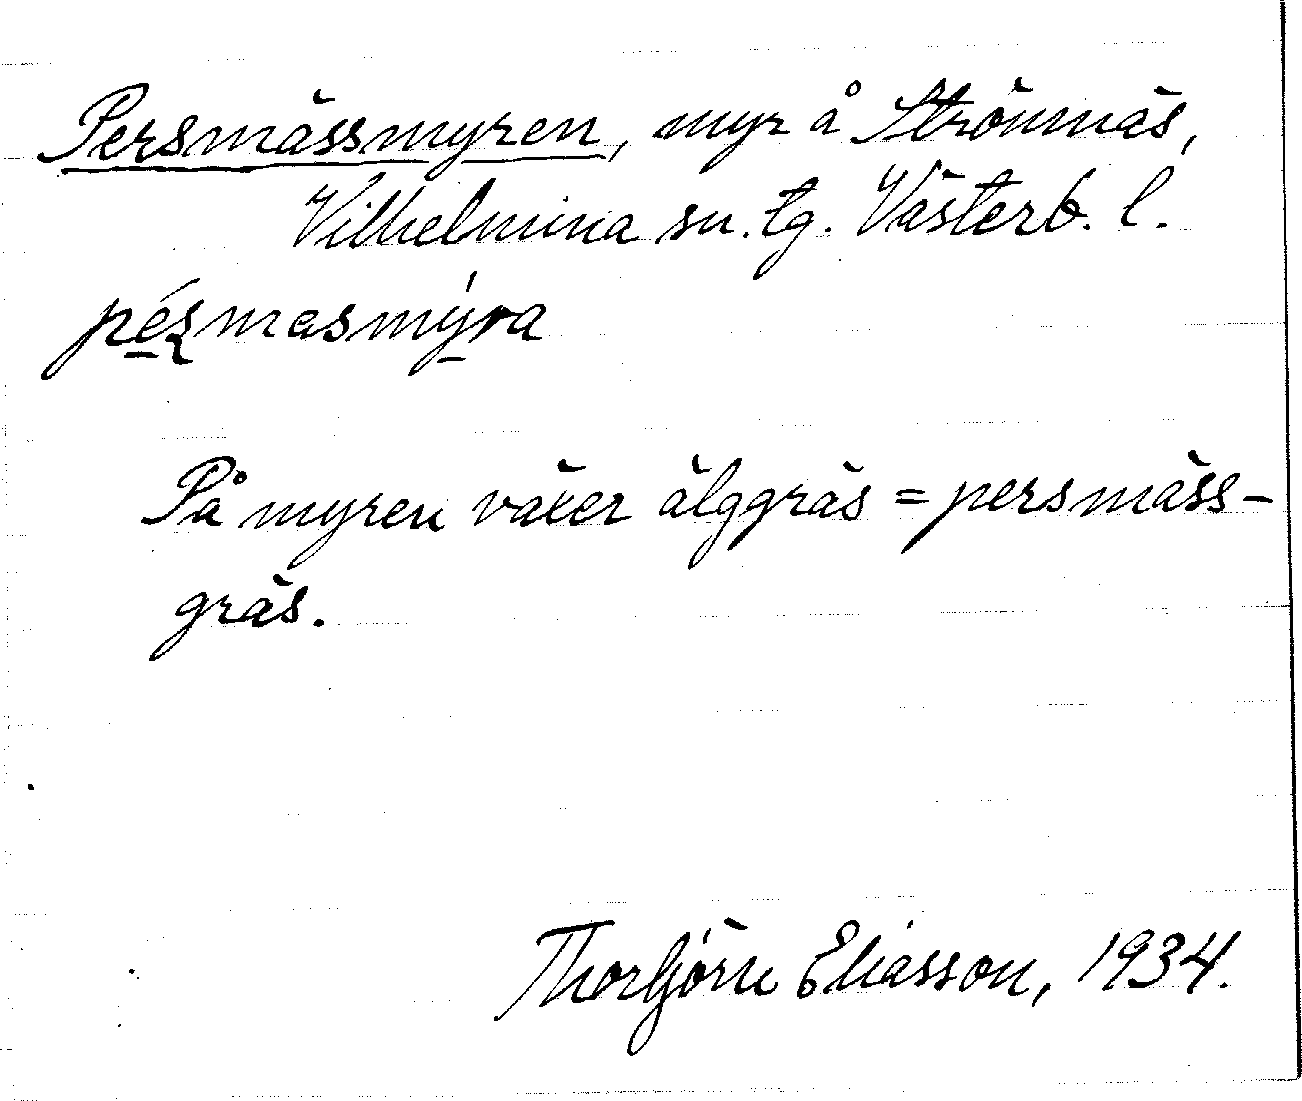 Persmässmyren, myr å Strömnäs,
Vilhelmina sn. tg. Västerb. l.
pé̱ʂmasmý̱ra
På myren växer älggräs = persmäss-
gräs.
Thorbjörn Eliasson, 1934.